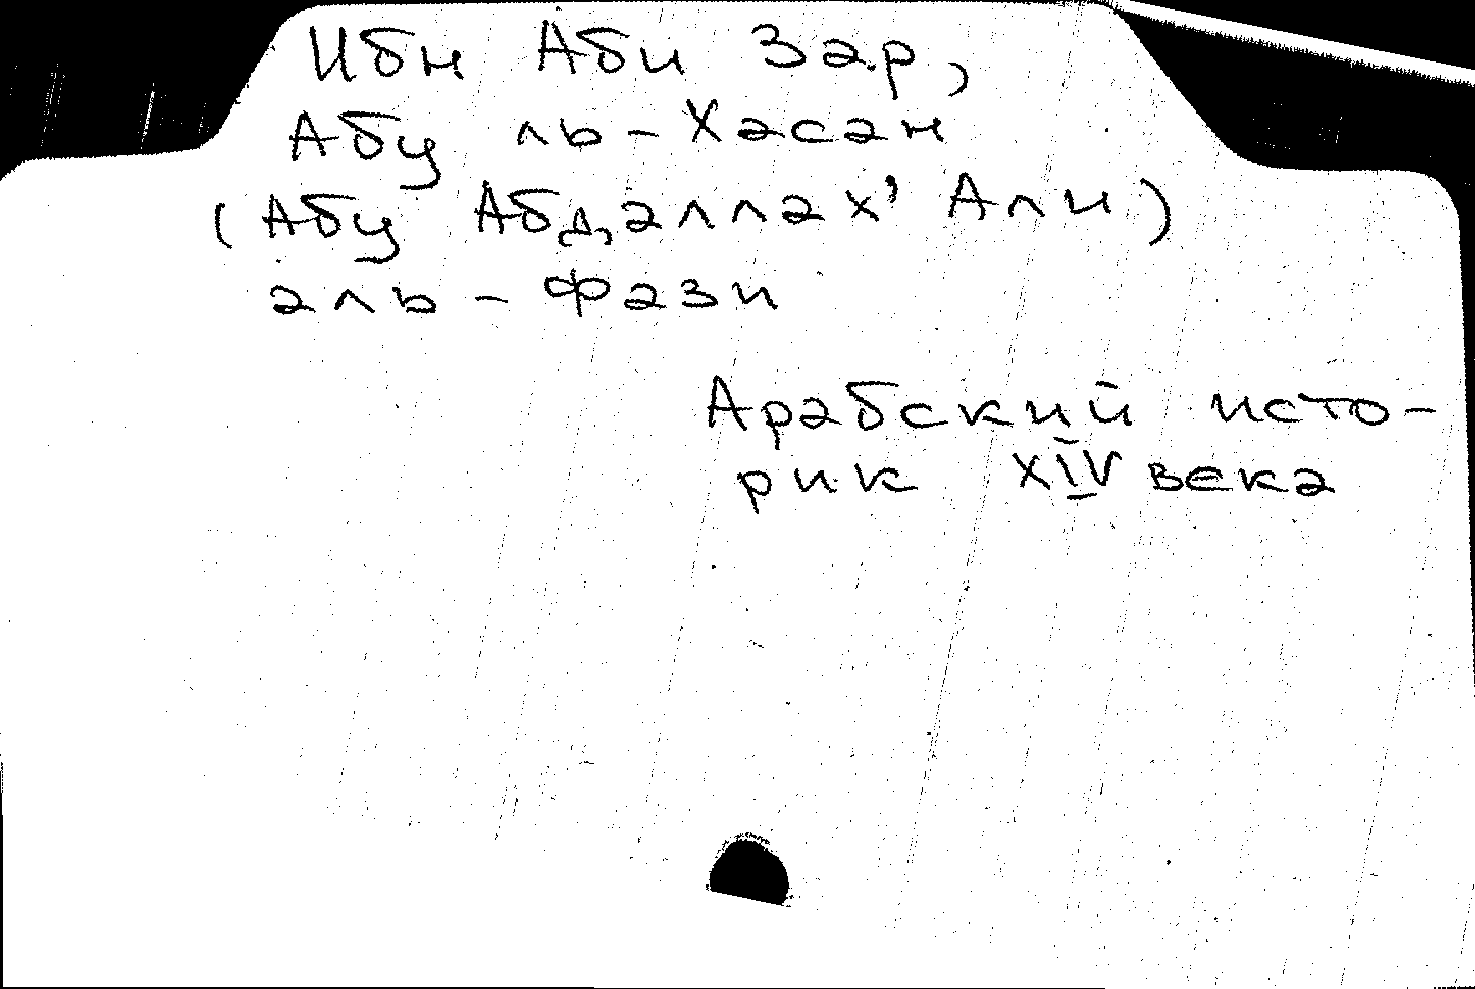 Ибн Аби Зар,
Абу ль-Хасан
(Абу Абд,аллах' Али)
аль-Фази
Арабский исто-
рик XIV века